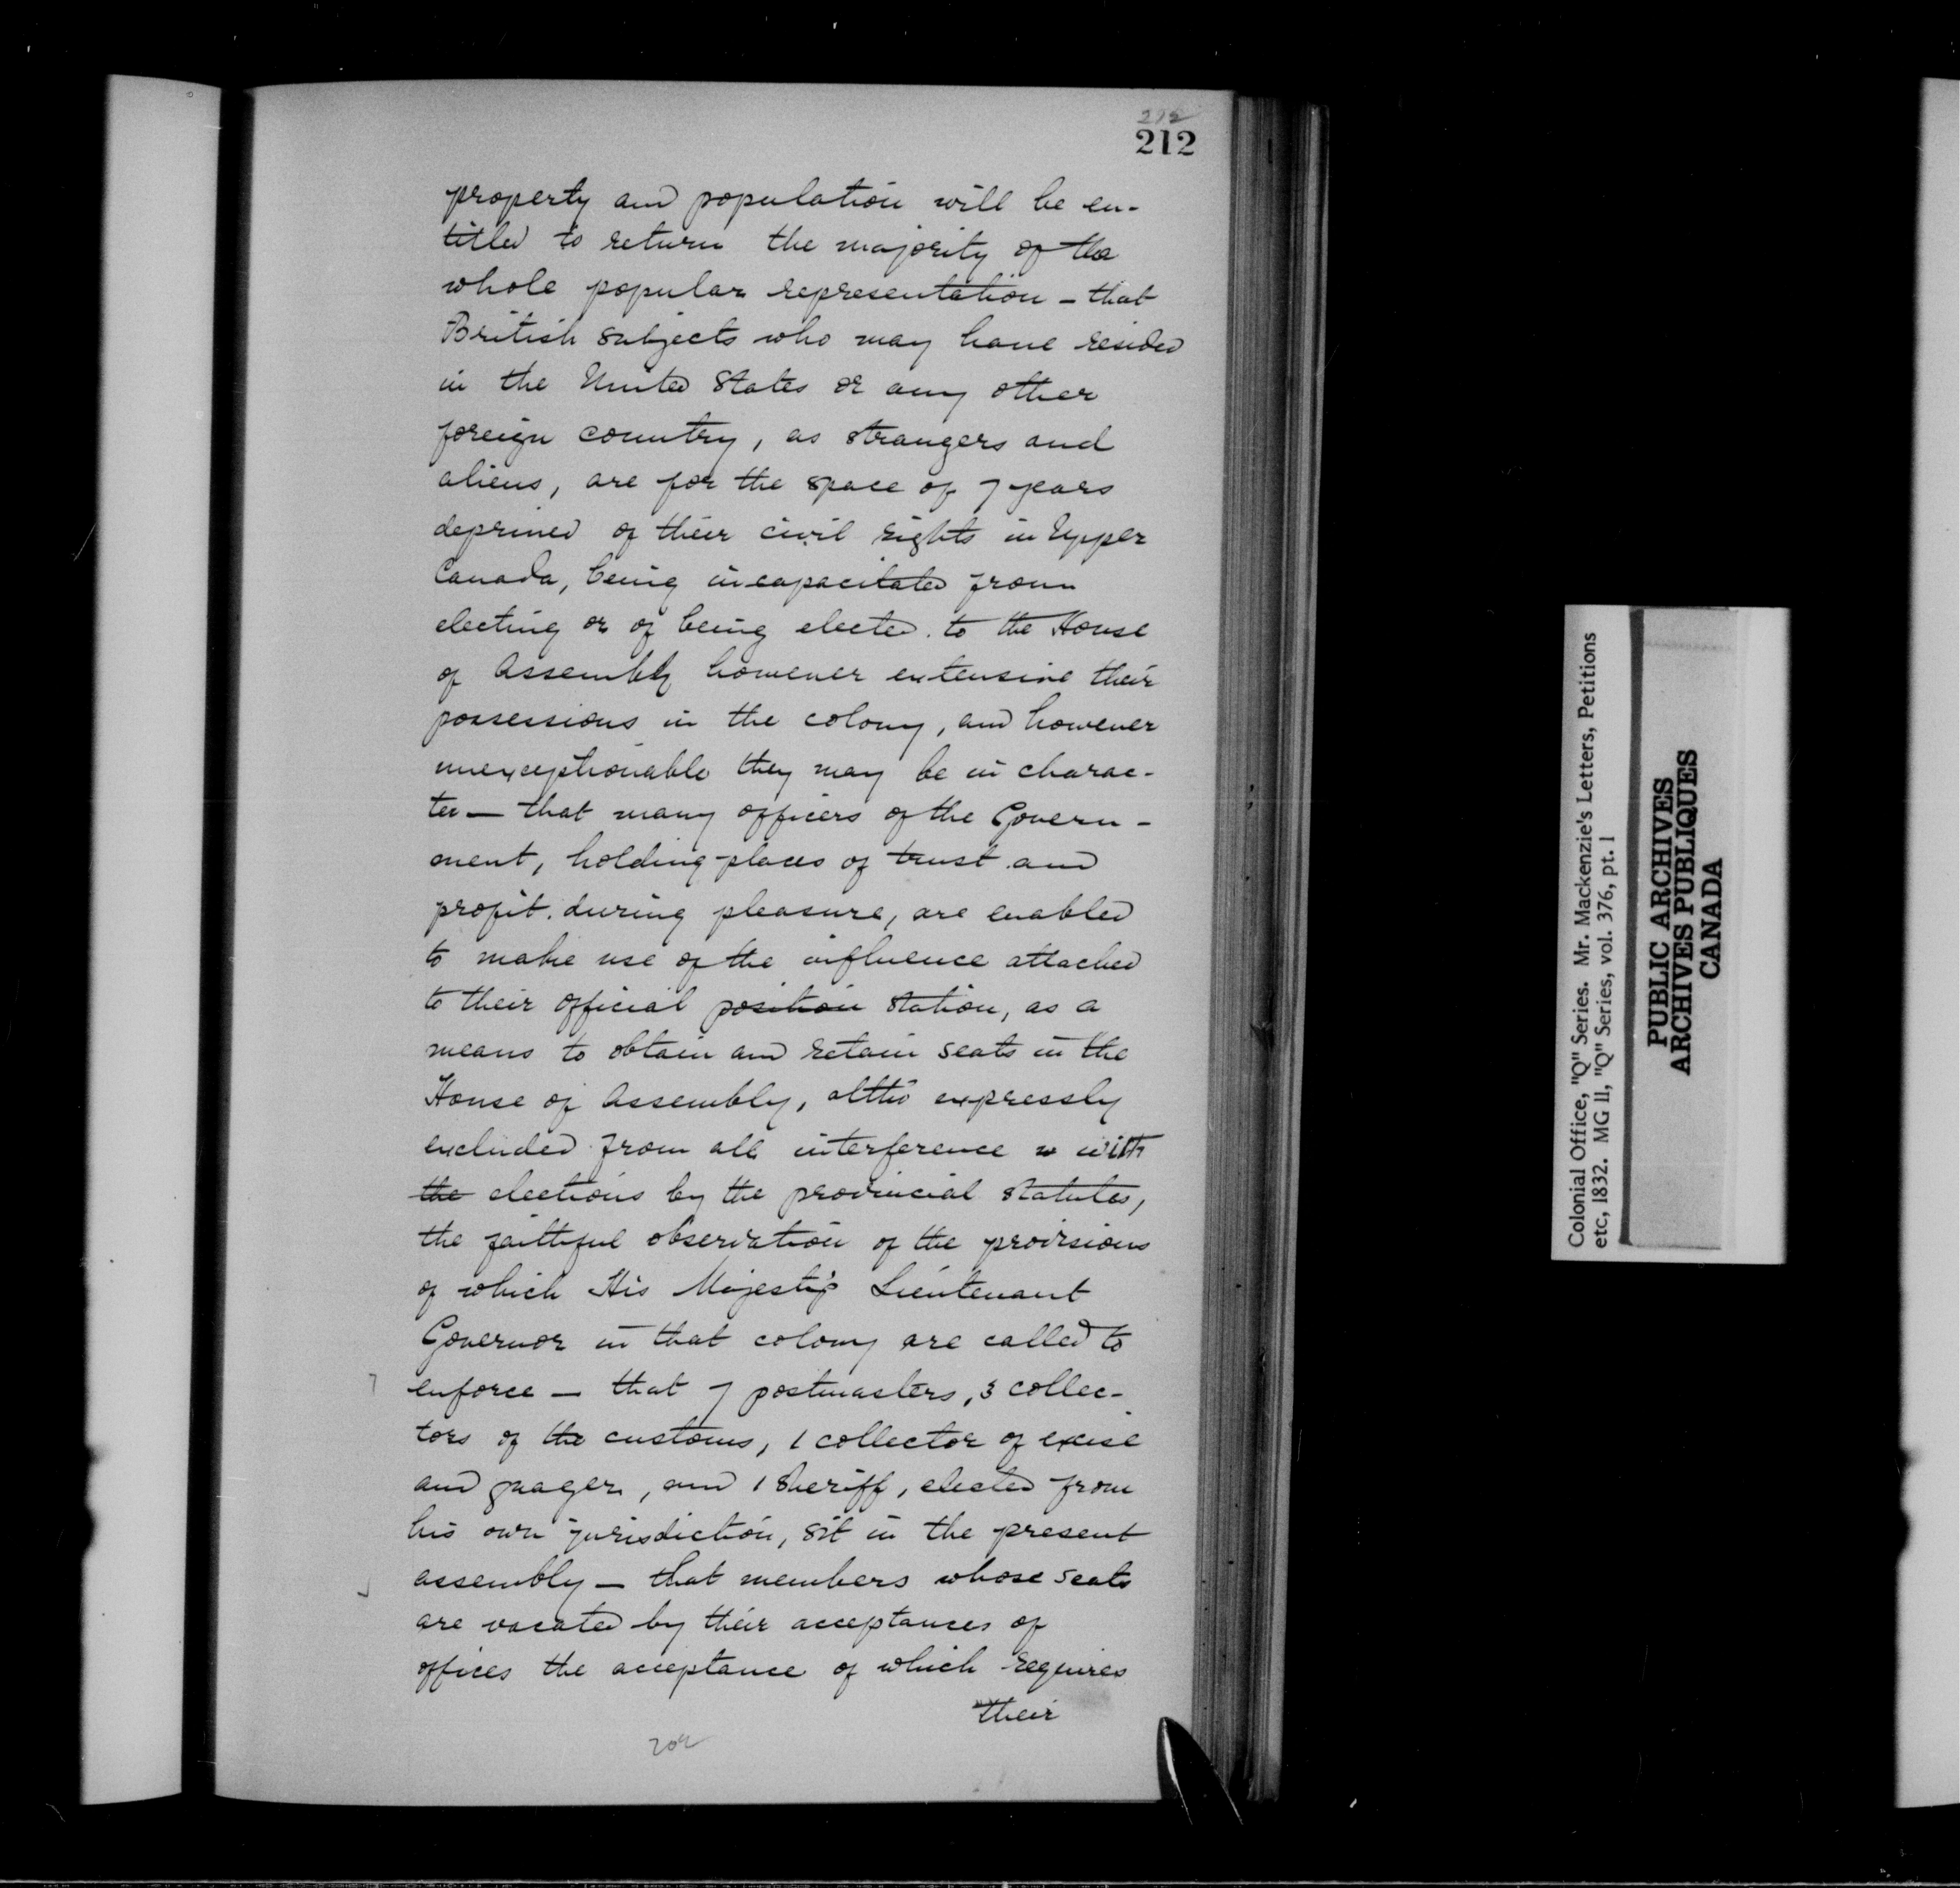 212
212
property and population will be en-
titled to return the majority of the
whole popular representation - that
British subjects who may have resided
in the United States or any other
foreign country, as strangers and
aliens, are for the space of 7 years
deprived of their civil rights in Upper
Canada, being incapacitated from
electing or of being elected to the House
of Assembly however extensive their
possessions in the colony, and however
unexceptionable they may be in charac-
ter - that many officers of the Govern-
ment, holding places of trust and
profit during pleasure, are enabled
to make use of the influence attached
to their official position station, as a
means to obtain and retain seats in the
House of Assembly, altho' expressly
excluded from all interference w with
the elections by the provincial statutes,
the faithful observation of the provisions
of which His Majesty's Lieutenant
Governor in that colony are called to
enforce - that 7 postmasters, 3 collec-
tors of the customs, 1 collector of excise
and guager, and 1 Sheriff, elected from
his own jurisdiction, sit in the present
assembly - that members whose seats
are vacated by their acceptances of
offices the acceptance of which requires
their
202
Colonial Office, "Q" Series. Mr. Mackenzie's Letters, Petitions
etc, 1832. MG 11, "Q" Series, vol. 376, pt. 1
PUBLIC ARCHIVES
ARCHIVES PUBLIQUES
CANADA